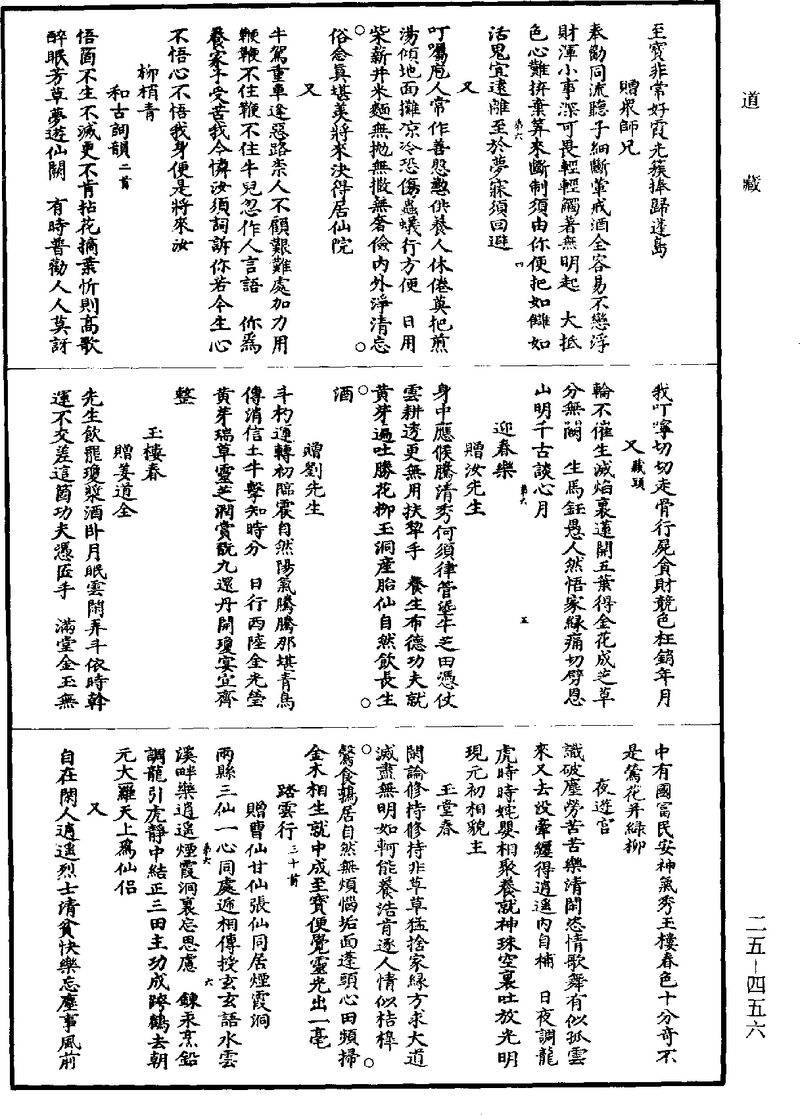 道藏
至寶非常好霞光簇捧歸蓬島
贈衆師兄
奉勸同流聽子細斷葷戒酒全容易不戀浮
財渾小事深可畏輕輕觸著無明起　大抵
色心難摒棄筭來斷制須由你便把如讎如
活鬼宜遠離至於夢寐須回避
第六　四
又
叮囑庖人常作善慇懃供養人休倦莫把煎
湯傾地面攤凉冷恐傷蟲蟻行方便　日用
柴薪井米麵無拋無撒無奢儉內外淨清忘
俗念真堪羡將來決得居仙院
又
牛駕重車逢惡路柰人不顧艱難處加力用
鞭鞭不住鞭不住牛兒忽作人言語　你爲
養家牛受苦我今憐汝須詞訴你若今生心
不悟心不悟我身便是將來汝
柳梢青
和古詞韻二首
悟箇不生不滅更不肯拈花摘葉忻則高歌
醉眠芳草夢遊仙闕　有時普勸人人莫訝
我叮嚀切切走骨行屍貪財競色枉銷年月
又藏頭
輪不催生滅焰裏蓮開五葉得金花成芝草
分無闕　生馬鈺愚人然悟家緣痛切劈恩
山明千古談心月
第六　五
迎春樂
贈汝先生
身中應候騰清秀何須律管坒牛芝田憑仗
雲耕透更無用扶犂手　養生布德功夫就
黃芽遍吐勝花柳玉洞産胎仙自然飲長生
酒
贈劉先生
斗杓運轉初臨震自然陽氣騰騰那堪青鳥
傳消信土牛擊知時分　日行西陸金光瑩
黃芽瑞草靈芝潤賞翫九還丹開瓊宴宜齊
整
玉樓春
贈姜道全
先生飲罷瓊漿酒卧月眠雲閑弄斗依時斡
運不交差這箇功夫憑匠手　滿堂金玉無
中有國富民安神氣秀玉樓春色十分奇不
是鶯花并綠柳
夜遊宮
識破塵勞苦苦樂清閑恣情歌舞有似孤雲
來又去沒牽纏得逍遥內自補　日夜調龍
虎時時姹嬰相聚養就神珠空裏吐放光明
現元初相貌主
玉堂春
閑論修持修持非草草猛捨家緣方求大道
滅盡無明如軻能養浩肯逐人情似桔槔
鶉食鶉居自然無煩惱垢面蓬頭心田頻掃
金木相生就中成至寶便覺靈光出一毫
踏雲行三十首
贈曹仙甘仙張仙同居煙霞洞
兩縣三仙一心同處遞相傳授玄玄語水雲
第六　六
溪畔樂逍遥煙霞洞裏忘思慮　鍊汞烹鉛
調龍引虎靜中結正三田主功成跨鶴去朝
元大羅天上爲仙侶
又
自在閑人逍遥烈士清貧快樂忘塵事風前
二五—四五六